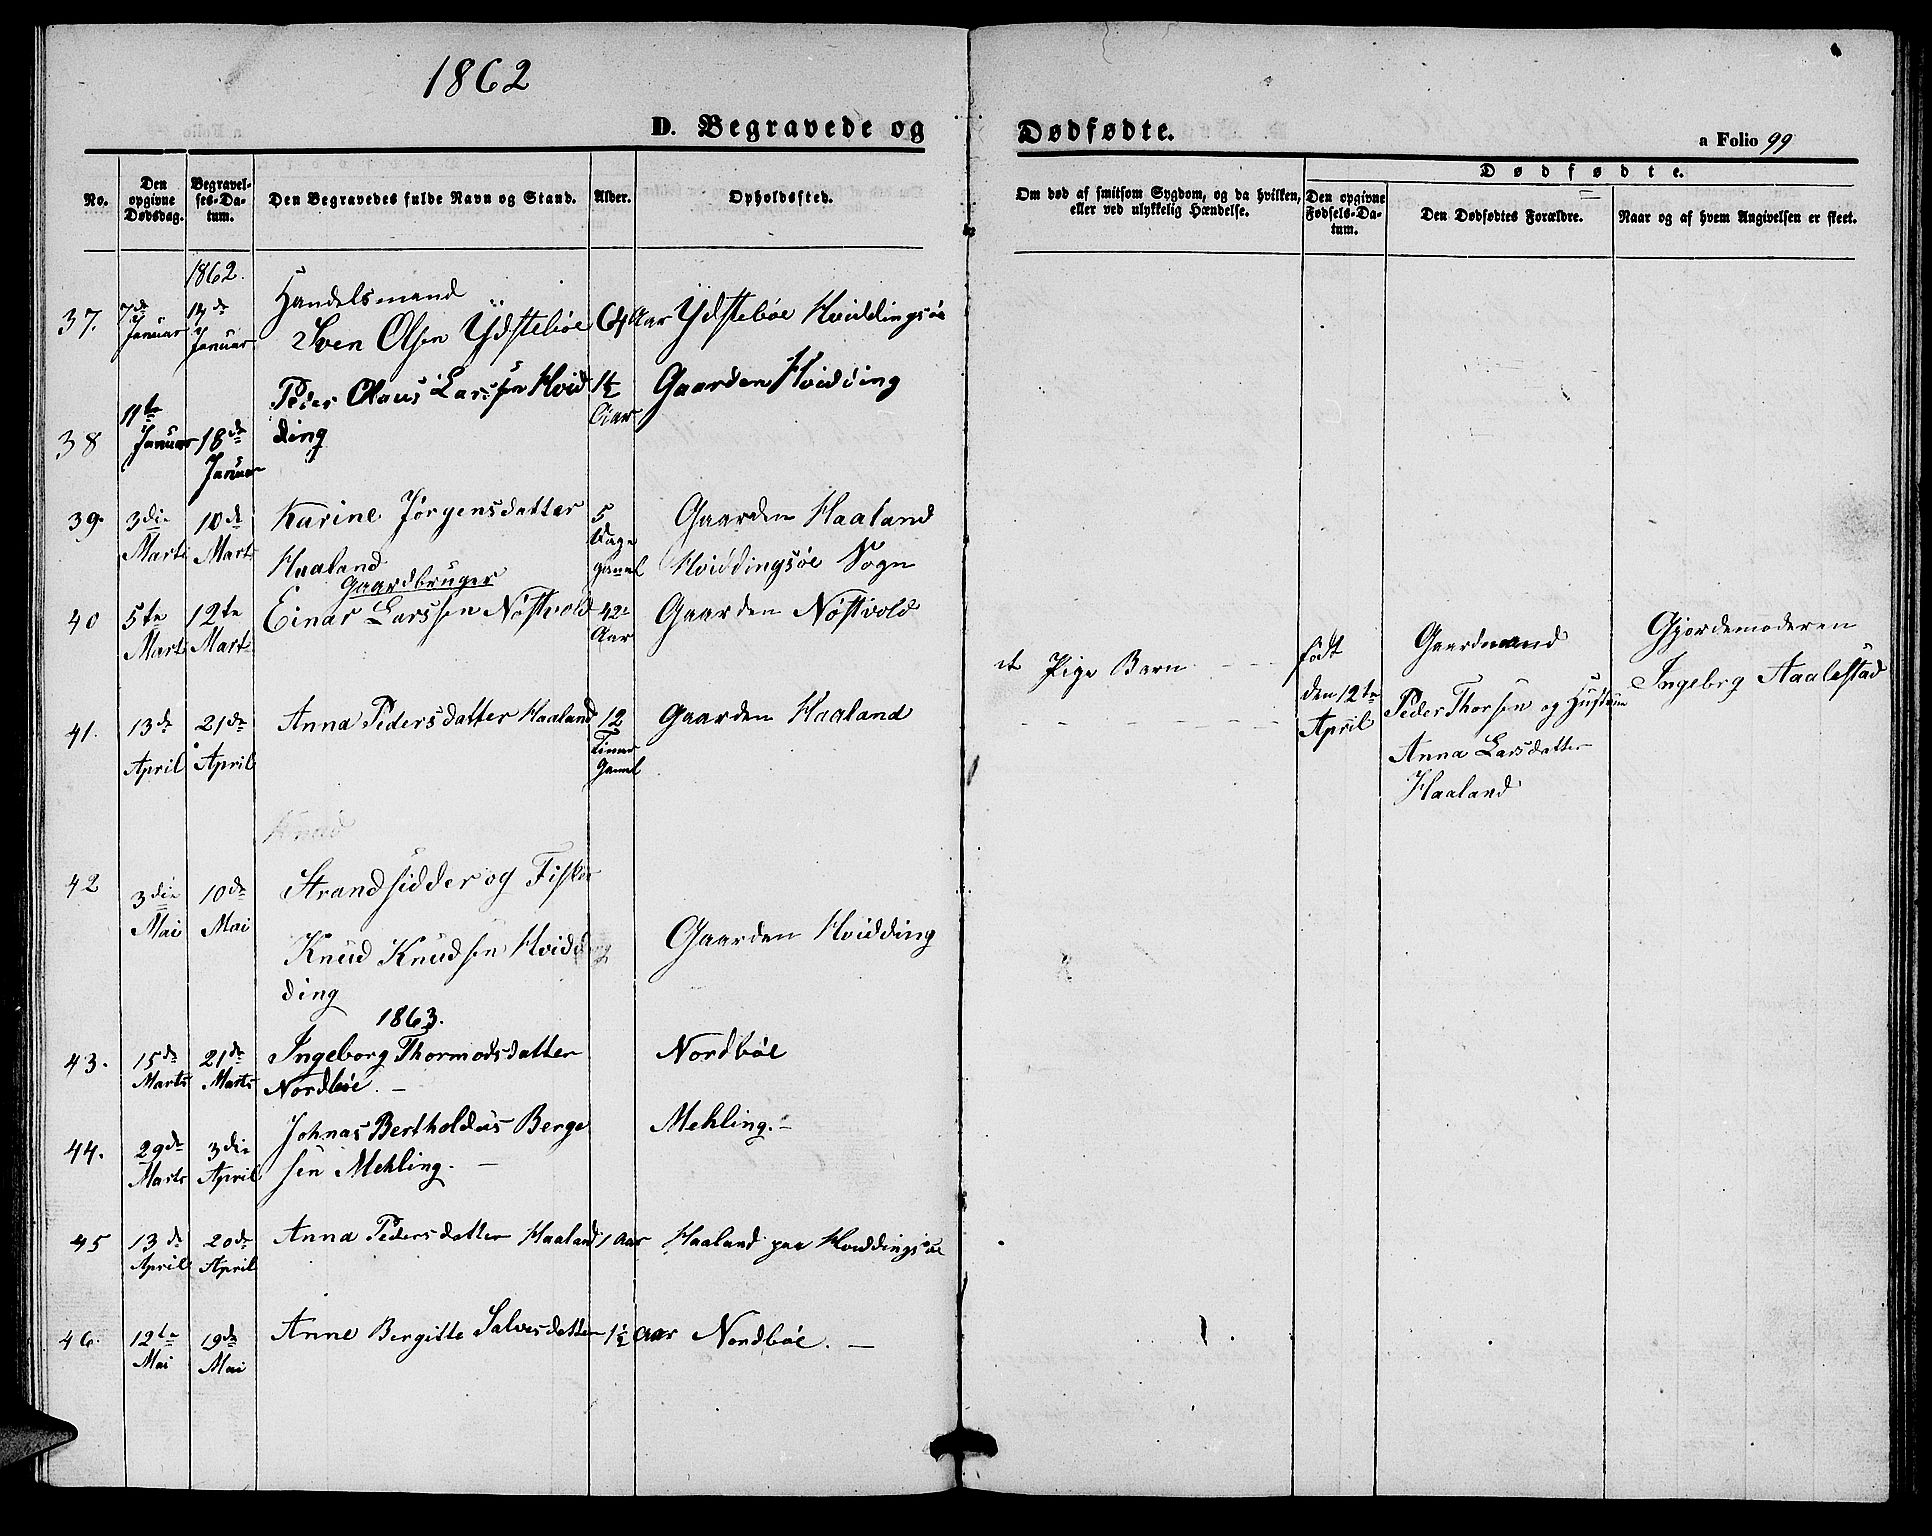 1862
D. Begravede og
Dødfødte.
a Folio 99
No.
Den opgivne Dødsdag.
Begravelses-Datum.
Den Begravedes fulde Navn og Stand.
Alder.
Opholdssted.
Om død af smitsom Sygdom, og da hvilken, eller ved ulykkelig Hændelse.
Dødfødte.
Den opgivne Fødsels-Datum.
Den Dødfødtes Forældre.
Naar og af hvem Angivelsen er skeet.
1862.
37. 7de Januar Januar Handelsmand
Sven Olsen Ydstebøe 64 Aar Ydstebøe Hviddingsøe
38 11te Januar 18de Januar Peder Olaus Larssen Hvid
ding 1½ Aar Gaarden Hvidding
39. 3die Marts 10de Marts Karine Jørgensdatter
Haaland 5 Dage gamel Gaarden Haaland
Hviddingsøe Sogn
Gaardbruger
40 5te Marts 12te Marts Einar Larssen Nøstvold 42 Aar Gaarden Nøstvold
41. 13de April 21de April Anna Pedersdatter Haaland 12 Timer Gamel Gaarden Haaland
et Pige Barn - - -
født
den 12te
April
Gaardmand
Peder Thorsen og Hustrue
Anna Larsdatter
Haaland
Gjordemoderen
Ingebrg Aalestad
Knud
42 3die Mai 10de Mai Strandsidder og Fisker
Knud Knudsen Hvidd
ding Gaarden Hvidding
1863.
43. 15de Marts 21de Marts Ingeborg Thormodsdatter
Nordbøe. - Nordbøe
44. 29de Marts 3die April Johnas Bertholdus Berge
sen Mehling. - Mehling. -
45 13de April 20de April Anna Pedersdatter Haaland 1 Aar Haaland paa Hviddingsøe
46. 12te Mai 19de Mai Anne Bergitte Salvesdatter 1½ Aar Nordbøe. -